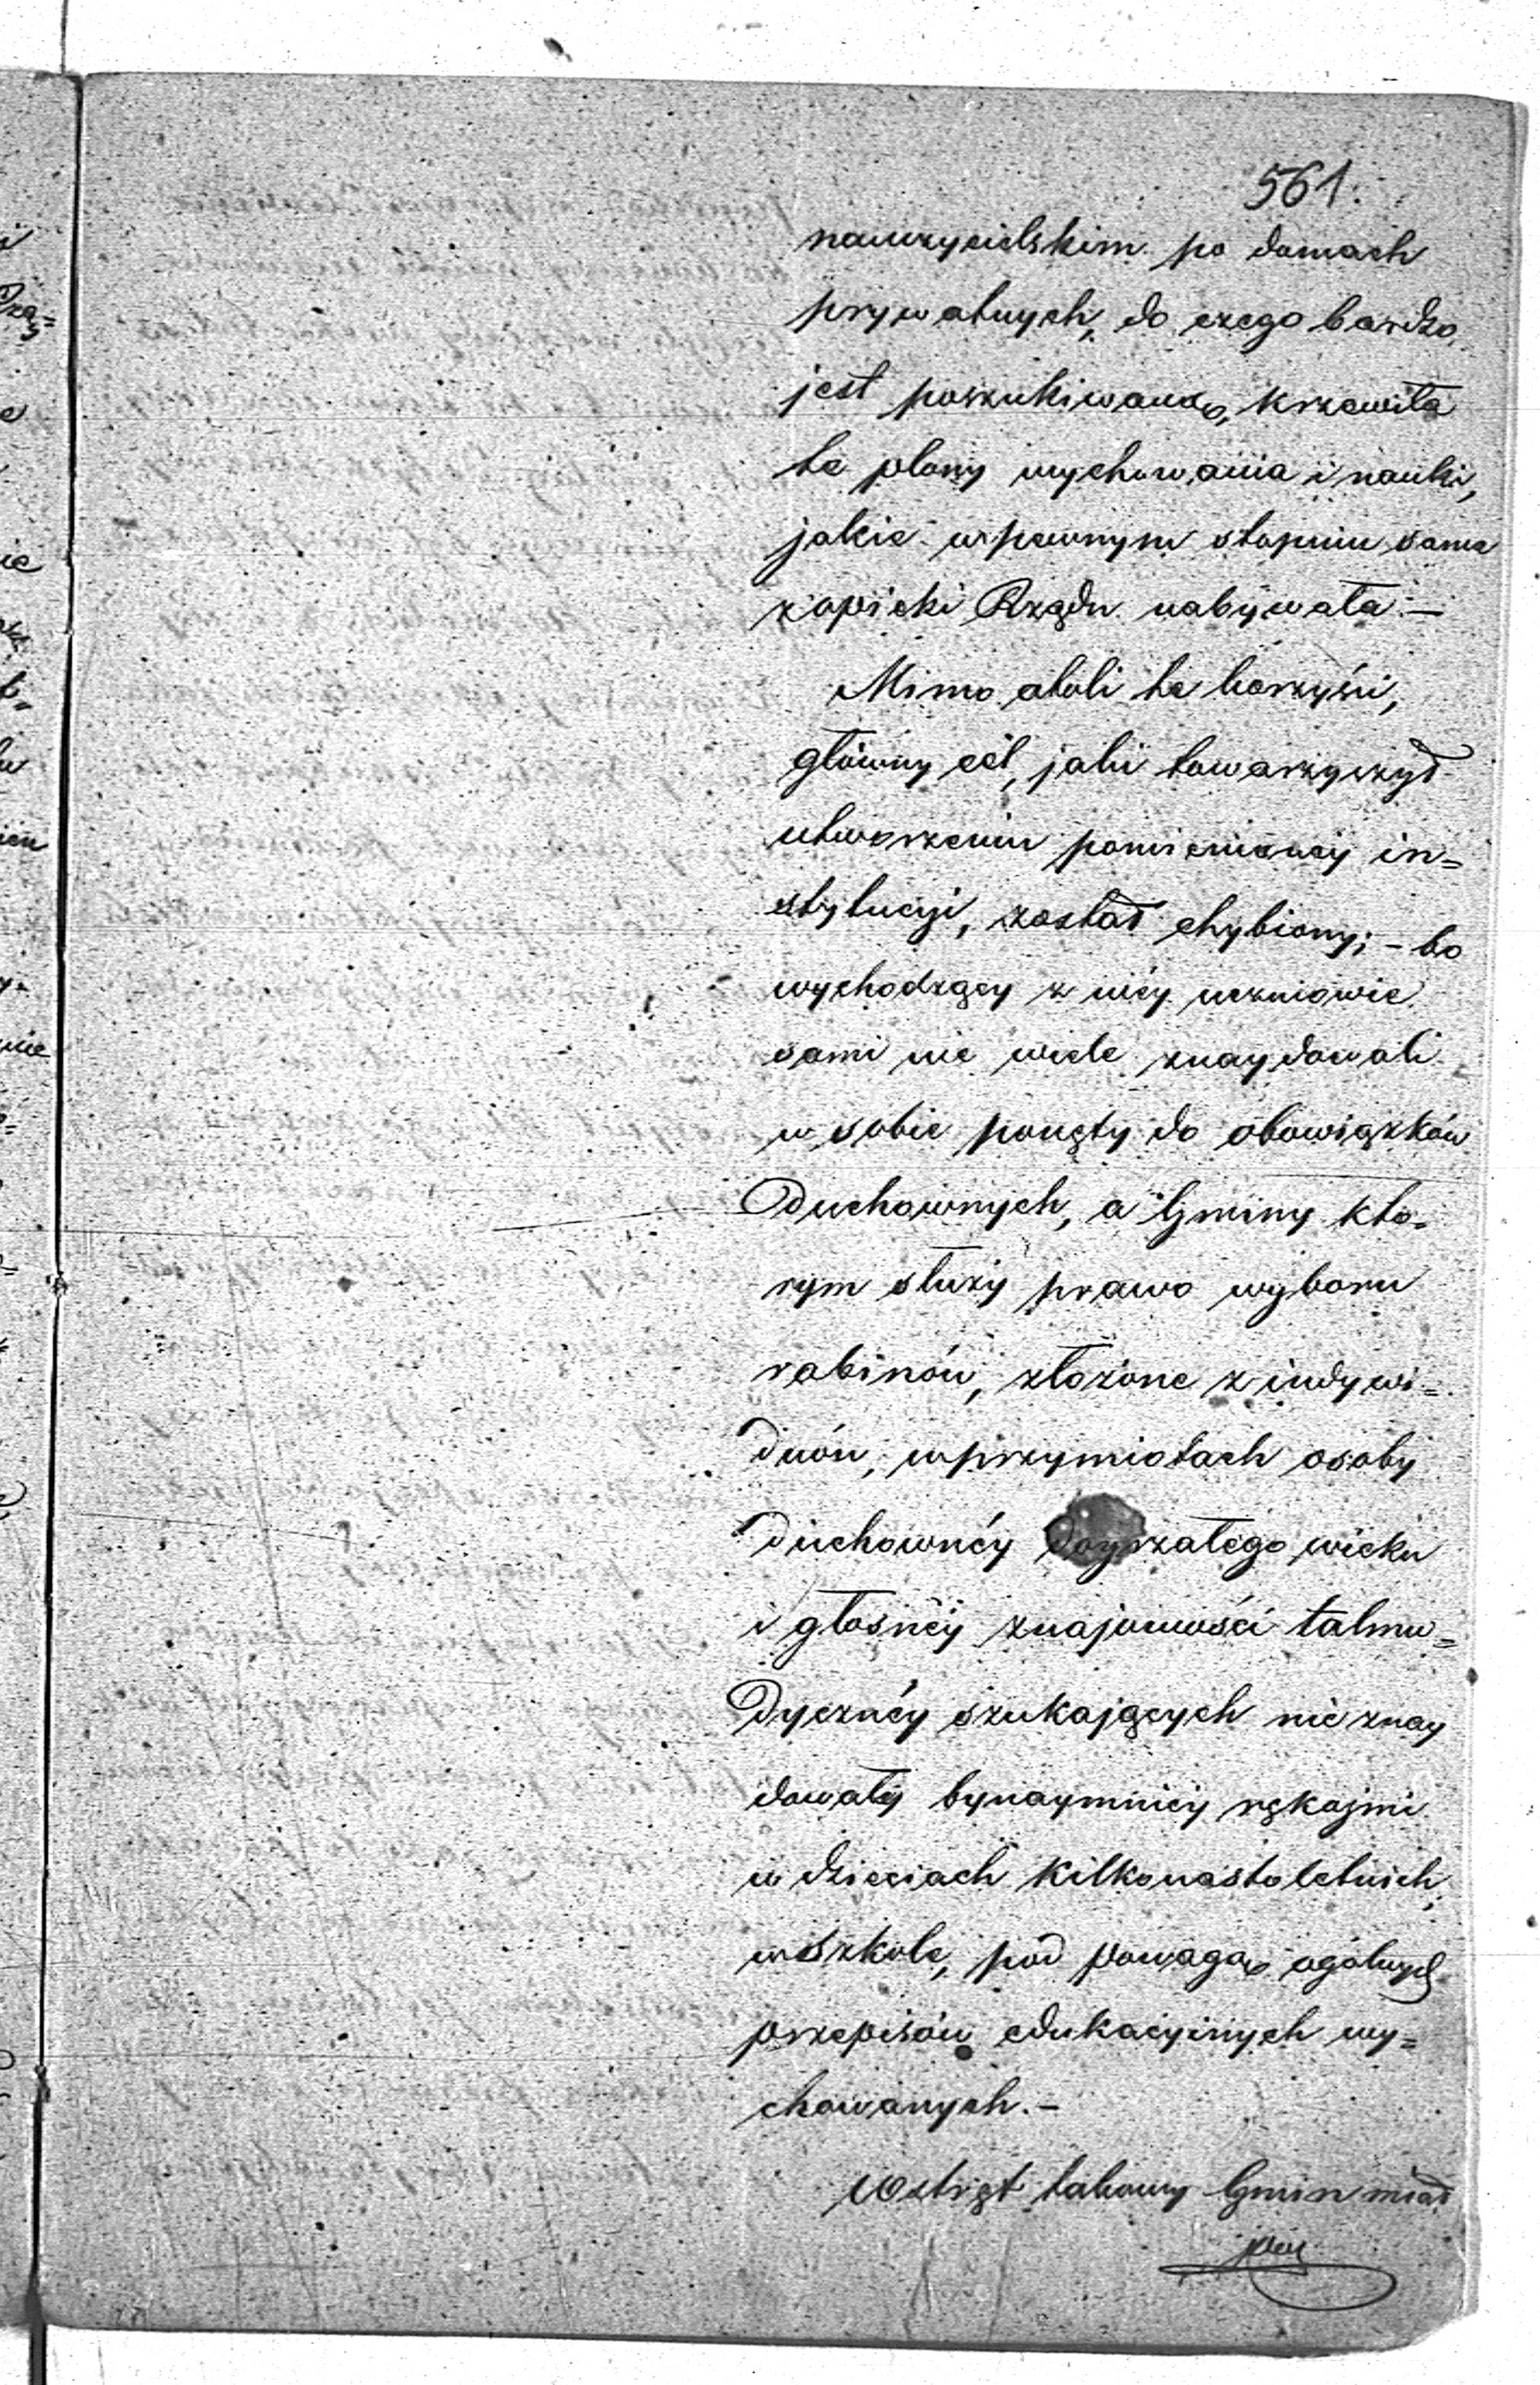 561.
nauczycielskim po domach
prywatnych, do czego bardzo
jest poszukiwaną, krzewiła
te plony wychowania i nauki,
jakie w pewnym stopniu sama
z opieki Rządu nabywała. —
Mimo atoli te korzyści,
główny cel, jaki towarzyszył
utworzeniu pomienioney in=
stytucyi, został chybiony; – bo
wychodzący z niéy uczniowie
sami nie wiele znaydowali
w sobie ponęty do obowiązków
Duchownych, a Gminy któ=
rym służy prawo wyboru
rabinów, złożone z indywi=
duów, w przymiotach osoby
duchownéy doyrzałego wieku
i głośnéy znajomości talmu=
dycznéy szukających nie znay
dowały bynaymniéy rękojmi
w dzieciach kilkonastoletnich,
w szkole, pod powagą ogólnych
przepisów edukacyinych wy=
chowanych. –
Wstręt takowy Gmin miał